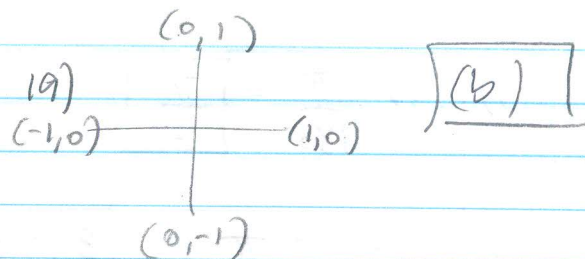 (0,1)
19)
(b)
(-1,0)
(1,0)
(0,-1)